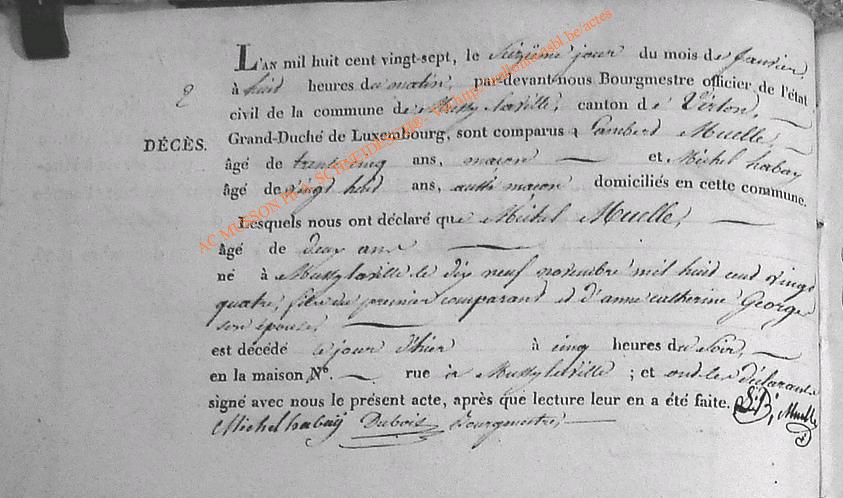 L'AN mil huit cent vingt-sept, le Seizième jour du mois de Janvier
2 à huit heures du matin, par-devant nous Bourgmestre officier de l'état
civil de la commune de Mussy laville, canton de Virton,
DÉCÈS. Grand-Duché de Luxembourg, sont comparus Lambert Muelle,
âgé de trente cinq ans, macon et Michel habay
âgé de vingt huit ans, aussi macon domiciliés en cette commune.
Lesquels nous ont déclaré que Michel Muelle,
âgé de deux ans
né à Mussy laville le dix neuf novembre mil huit cent vingt
quatre, fils du premier comparant et d'anne catherine George
son épouse,
est décédé le jour d'hier à cinq heures du Soir,
en la maison N.° rue à Mussy laville ; et ont les déclarants
signé avec nous le présent acte, après que lecture leur en a été faite. Muelle
Michel habaÿ Dubois Bourgmestre,
AC MUSSON PF A. SCHNEIDESCH®- Via http://
be/actes